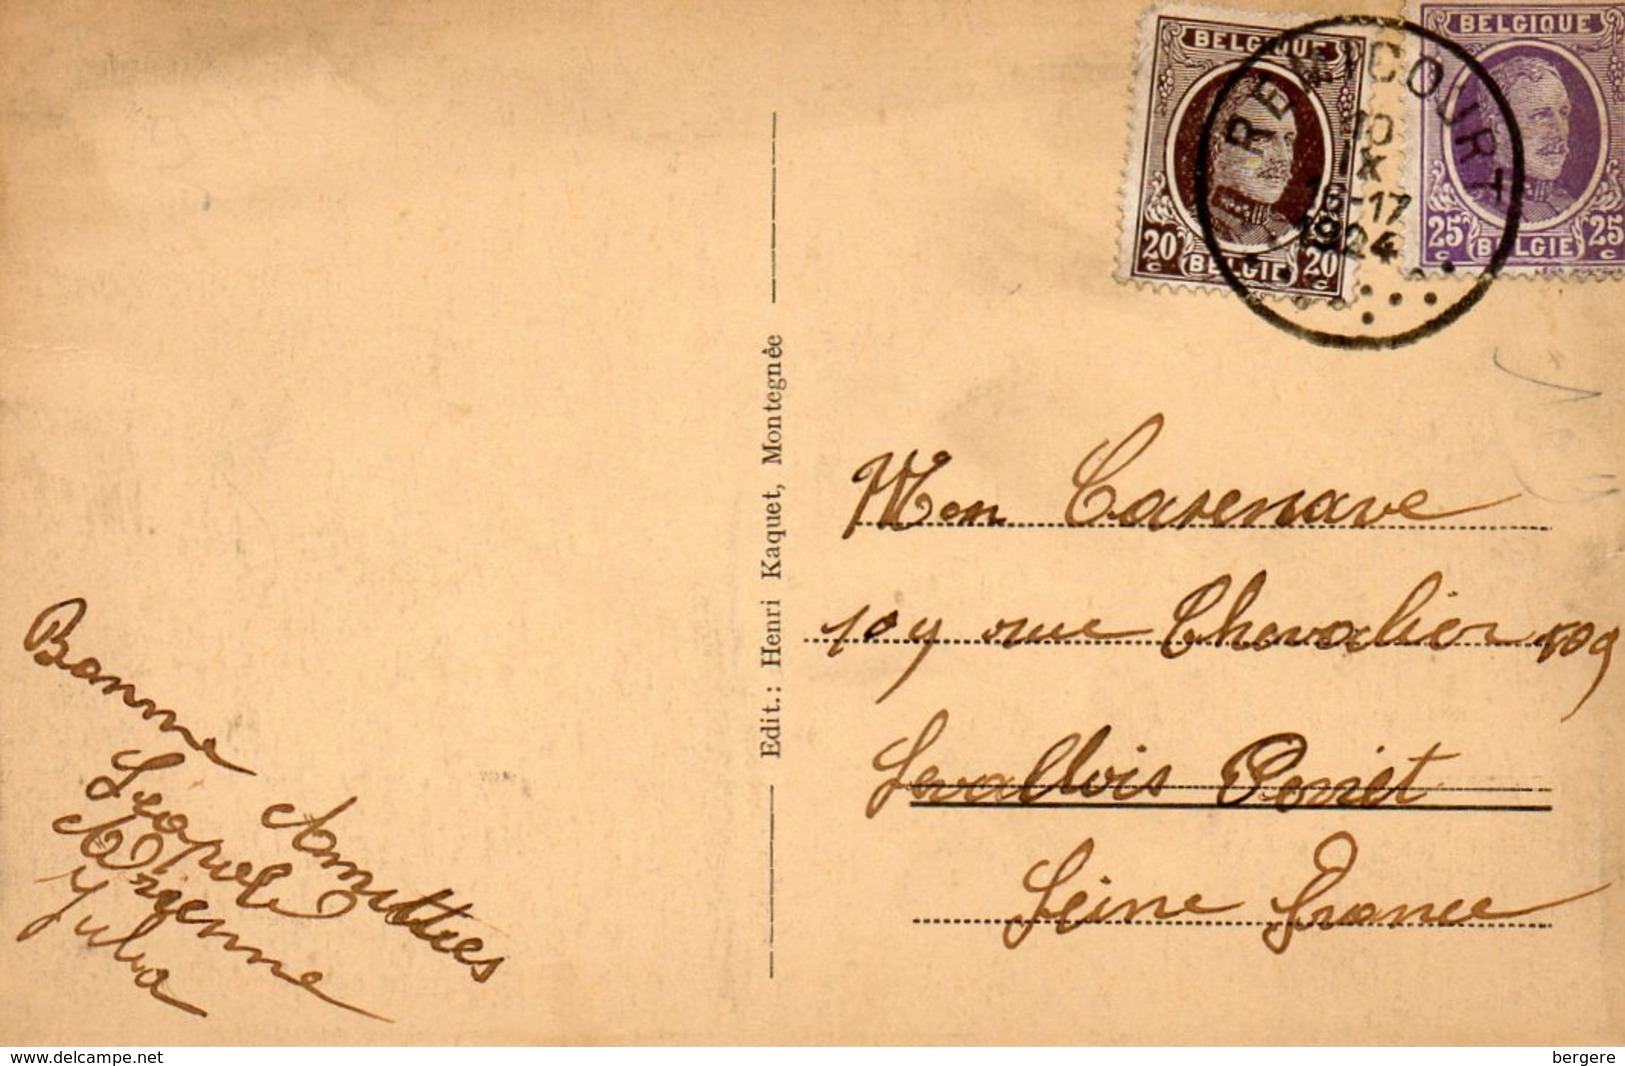 BELGIQUE
20 c BELGIE 20 c
BELGIQUE
25 c BELGIE 25 c
REMICOURT
10
IX
16-17
1924
Edit.: Henri Kaquet, Montegnée
Mon Casenave
109 rue Chevalier 109
Levallois Perret
Seine France
Bonne Amitties
Léopold
Julia
www.delcampe.net
bergere